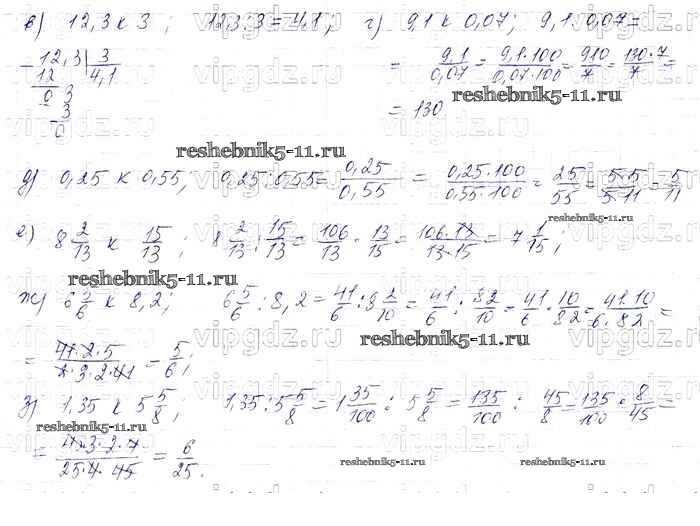 в) 12,3 к 3; 12,3:3=4,1; г) 9,1 к 0,07; 9,1:0,07=
- 12,3 | 3
12 4,1
0 3
- 3
0
= 9,1/0,07 = 9,1·100/0,07·100 = 910/7 = 130·7/7 =
= 130
reshebnik5-11.ru
reshebnik5-11.ru
д) 0,25 к 0,55, 0,25:0,55= 0,25/0,55 = 0,25·100/0,55·100 = 25/55 = 5·5/5·11 = 5/11
reshebnik5-11.ru
е) 8 2/13 к 15/13; 8 2/13 : 15/13 = 106/13 · 13/15 = 106·13/13·15 = 7 1/15;
reshebnik5-11.ru
ж) 6 5/6 к 8,2; 6 5/6 : 8,2 = 41/6 : 8 2/10 = 41/6 : 82/10 = 41/6 · 10/82 = 41·10/6·82 =
reshebnik5-11.ru
= 41·2·5/2·3·2·41 = 5/6;
з) 1,35 к 5 5/8; 1,35:5 5/8 = 1 35/100 : 5 5/8 = 135/100 : 45/8 = 135/100 · 8/45 =
reshebnik5-11.ru
= 6/25.
reshebnik5-11.ru
reshebnik5-11.ru
vipgdz.ru